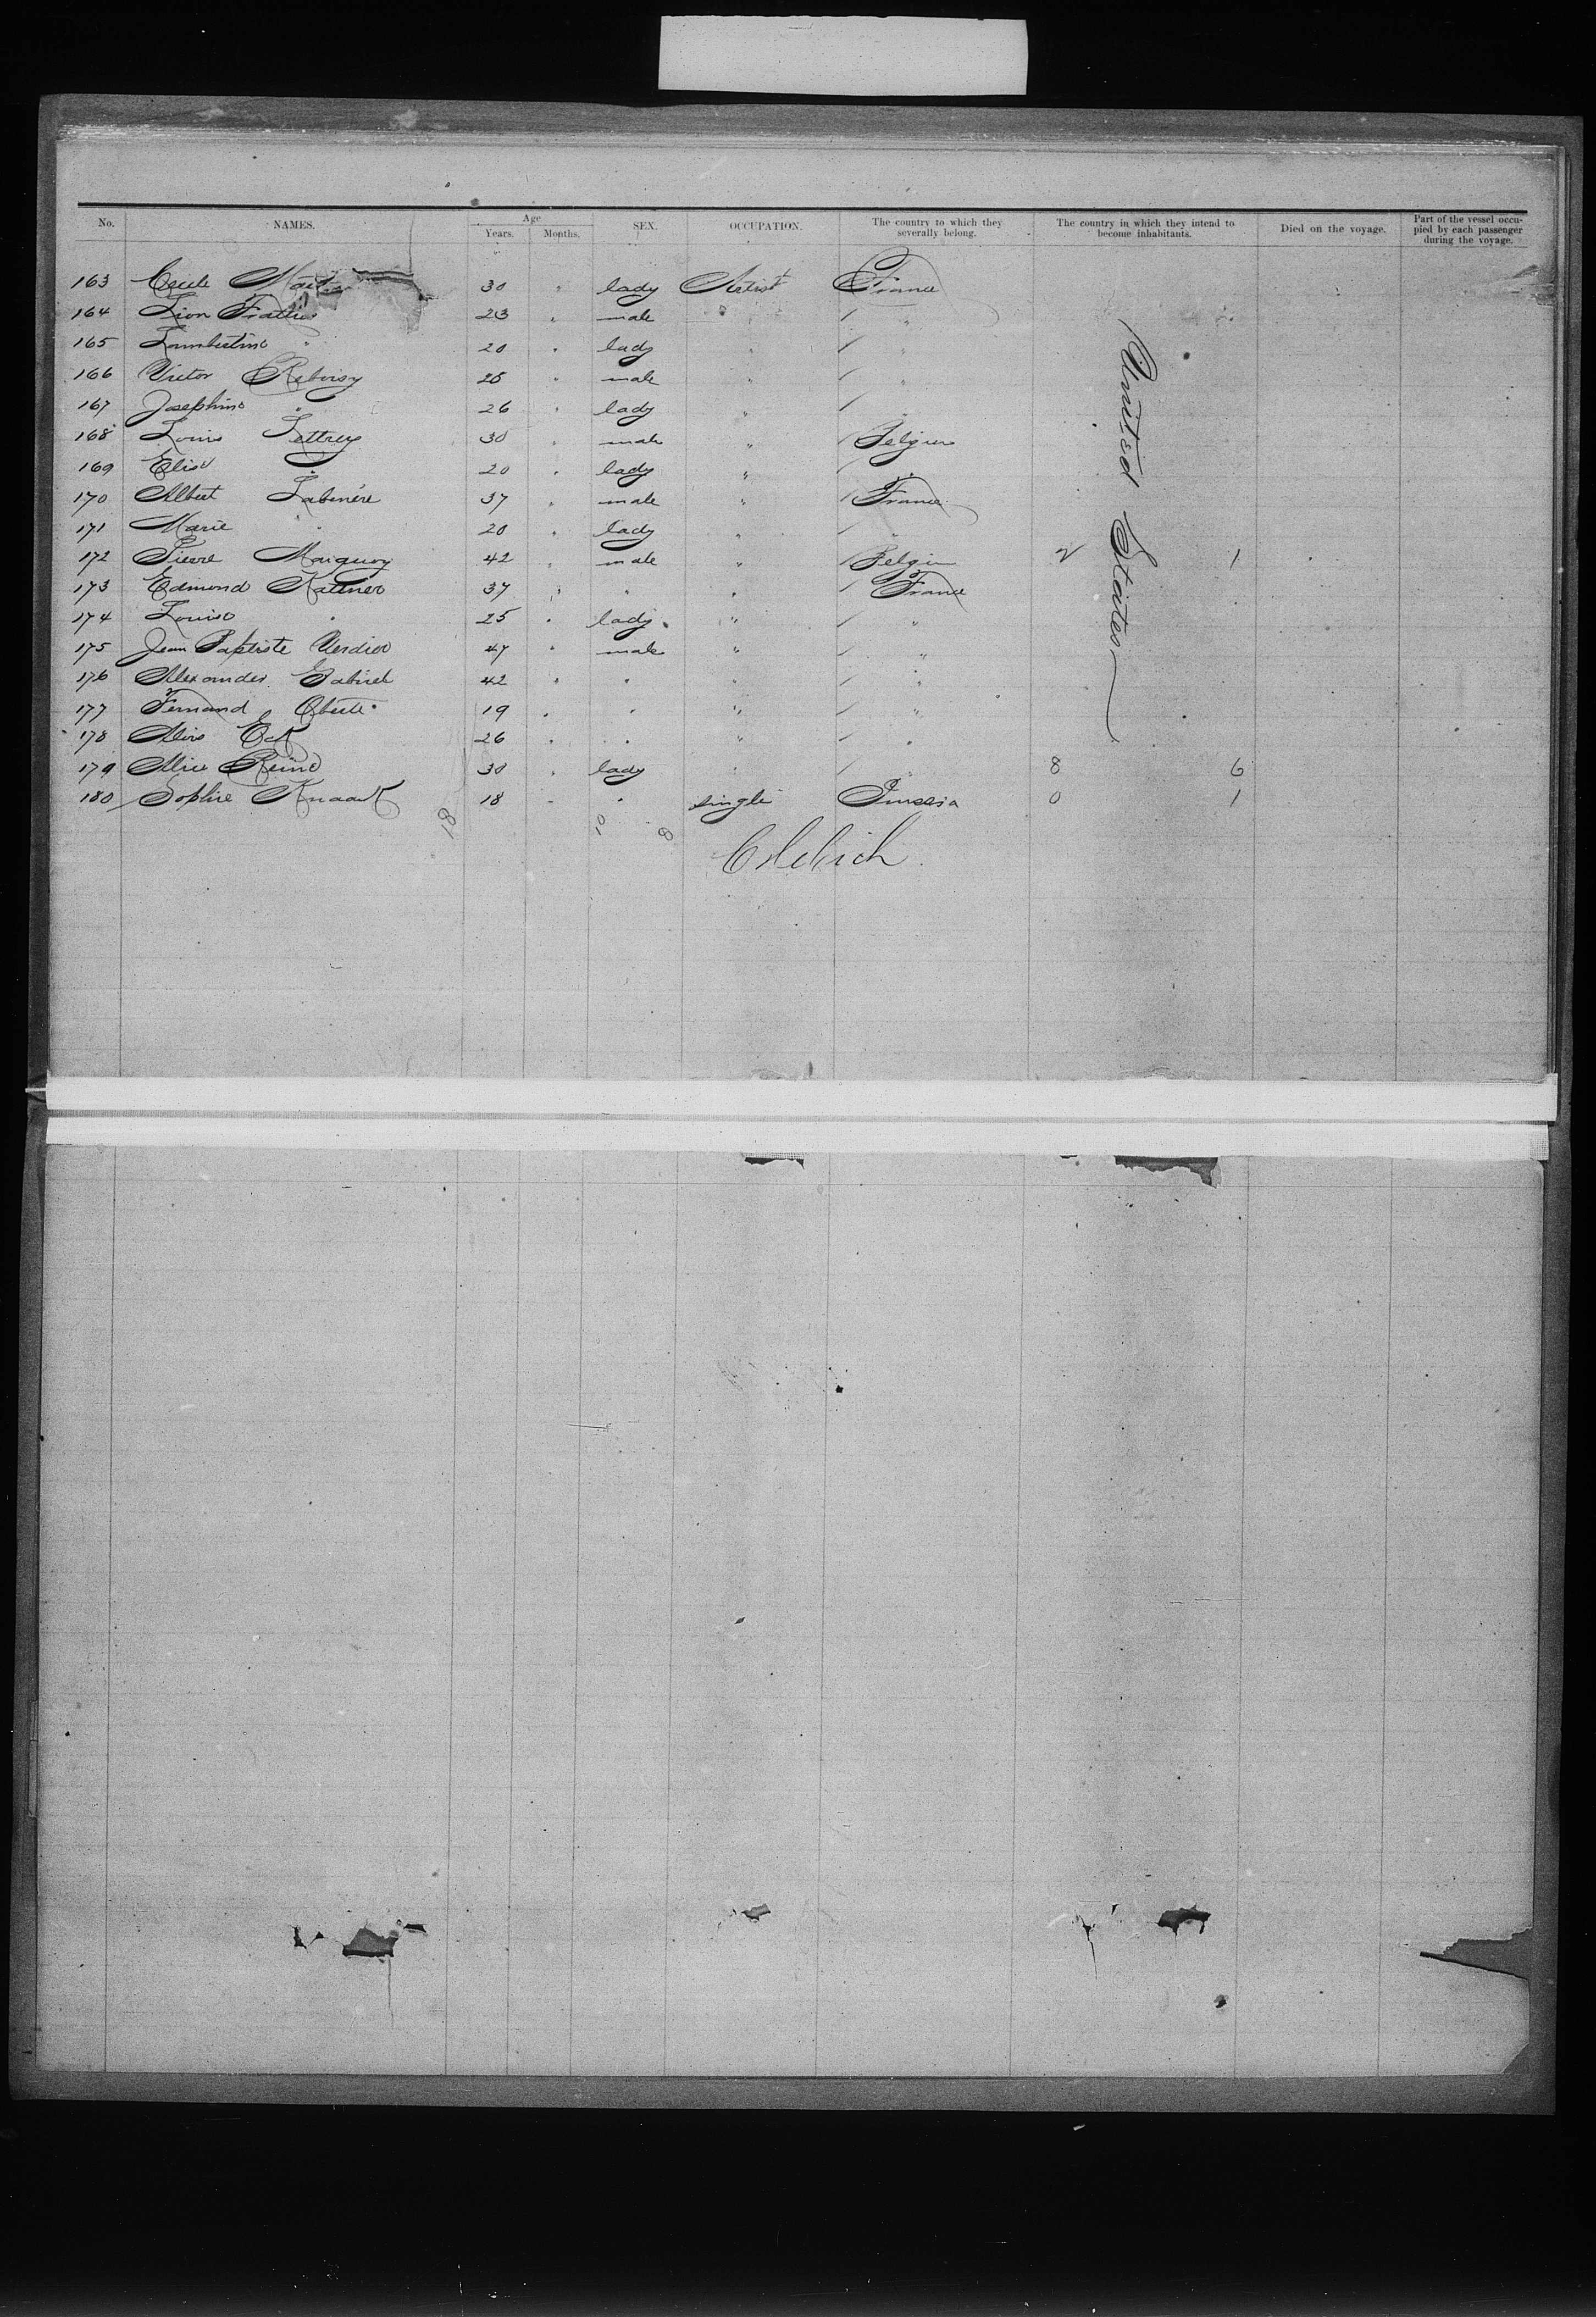 No. NAMES. Age Years. Months. SEX. OCCUPATION. The country to which they severally belong. The country in which they intend to become inhabitants. Died on the voyage. Part of the vessel occupied by each passenger during the voyage.
163 Cecile 30 " lady Artist France
164 Lion 23 " male " / "
165 Lambertine " 20 " lady " / "
166 Victor Reboisy 25 " male " / "
167 Josephine " 26 " lady " / "
168 Louis Lettrey 30 " male " / Belgien
169 Elise " 20 " lady " / "
170 Albert 37 " male " / France
171 Marie " 20 " lady " / "
172 Pierre 42 " male " / Belgien 2 1
173 Edmond Kattner 37 " " " / France
174 Louise " 25 " lady " / "
175 Jean Baptiste Verdier 47 " male " / "
176 Alexander Gabriel 42 " " " / "
177 Fernand 19 " " " / "
178 Alois Eck 26 " " " / "
179 Alice Reine 30 " lady " / " 8 6
180 Sophie Knaack 18 " " single Prussia 0 1
United States
18 10 8